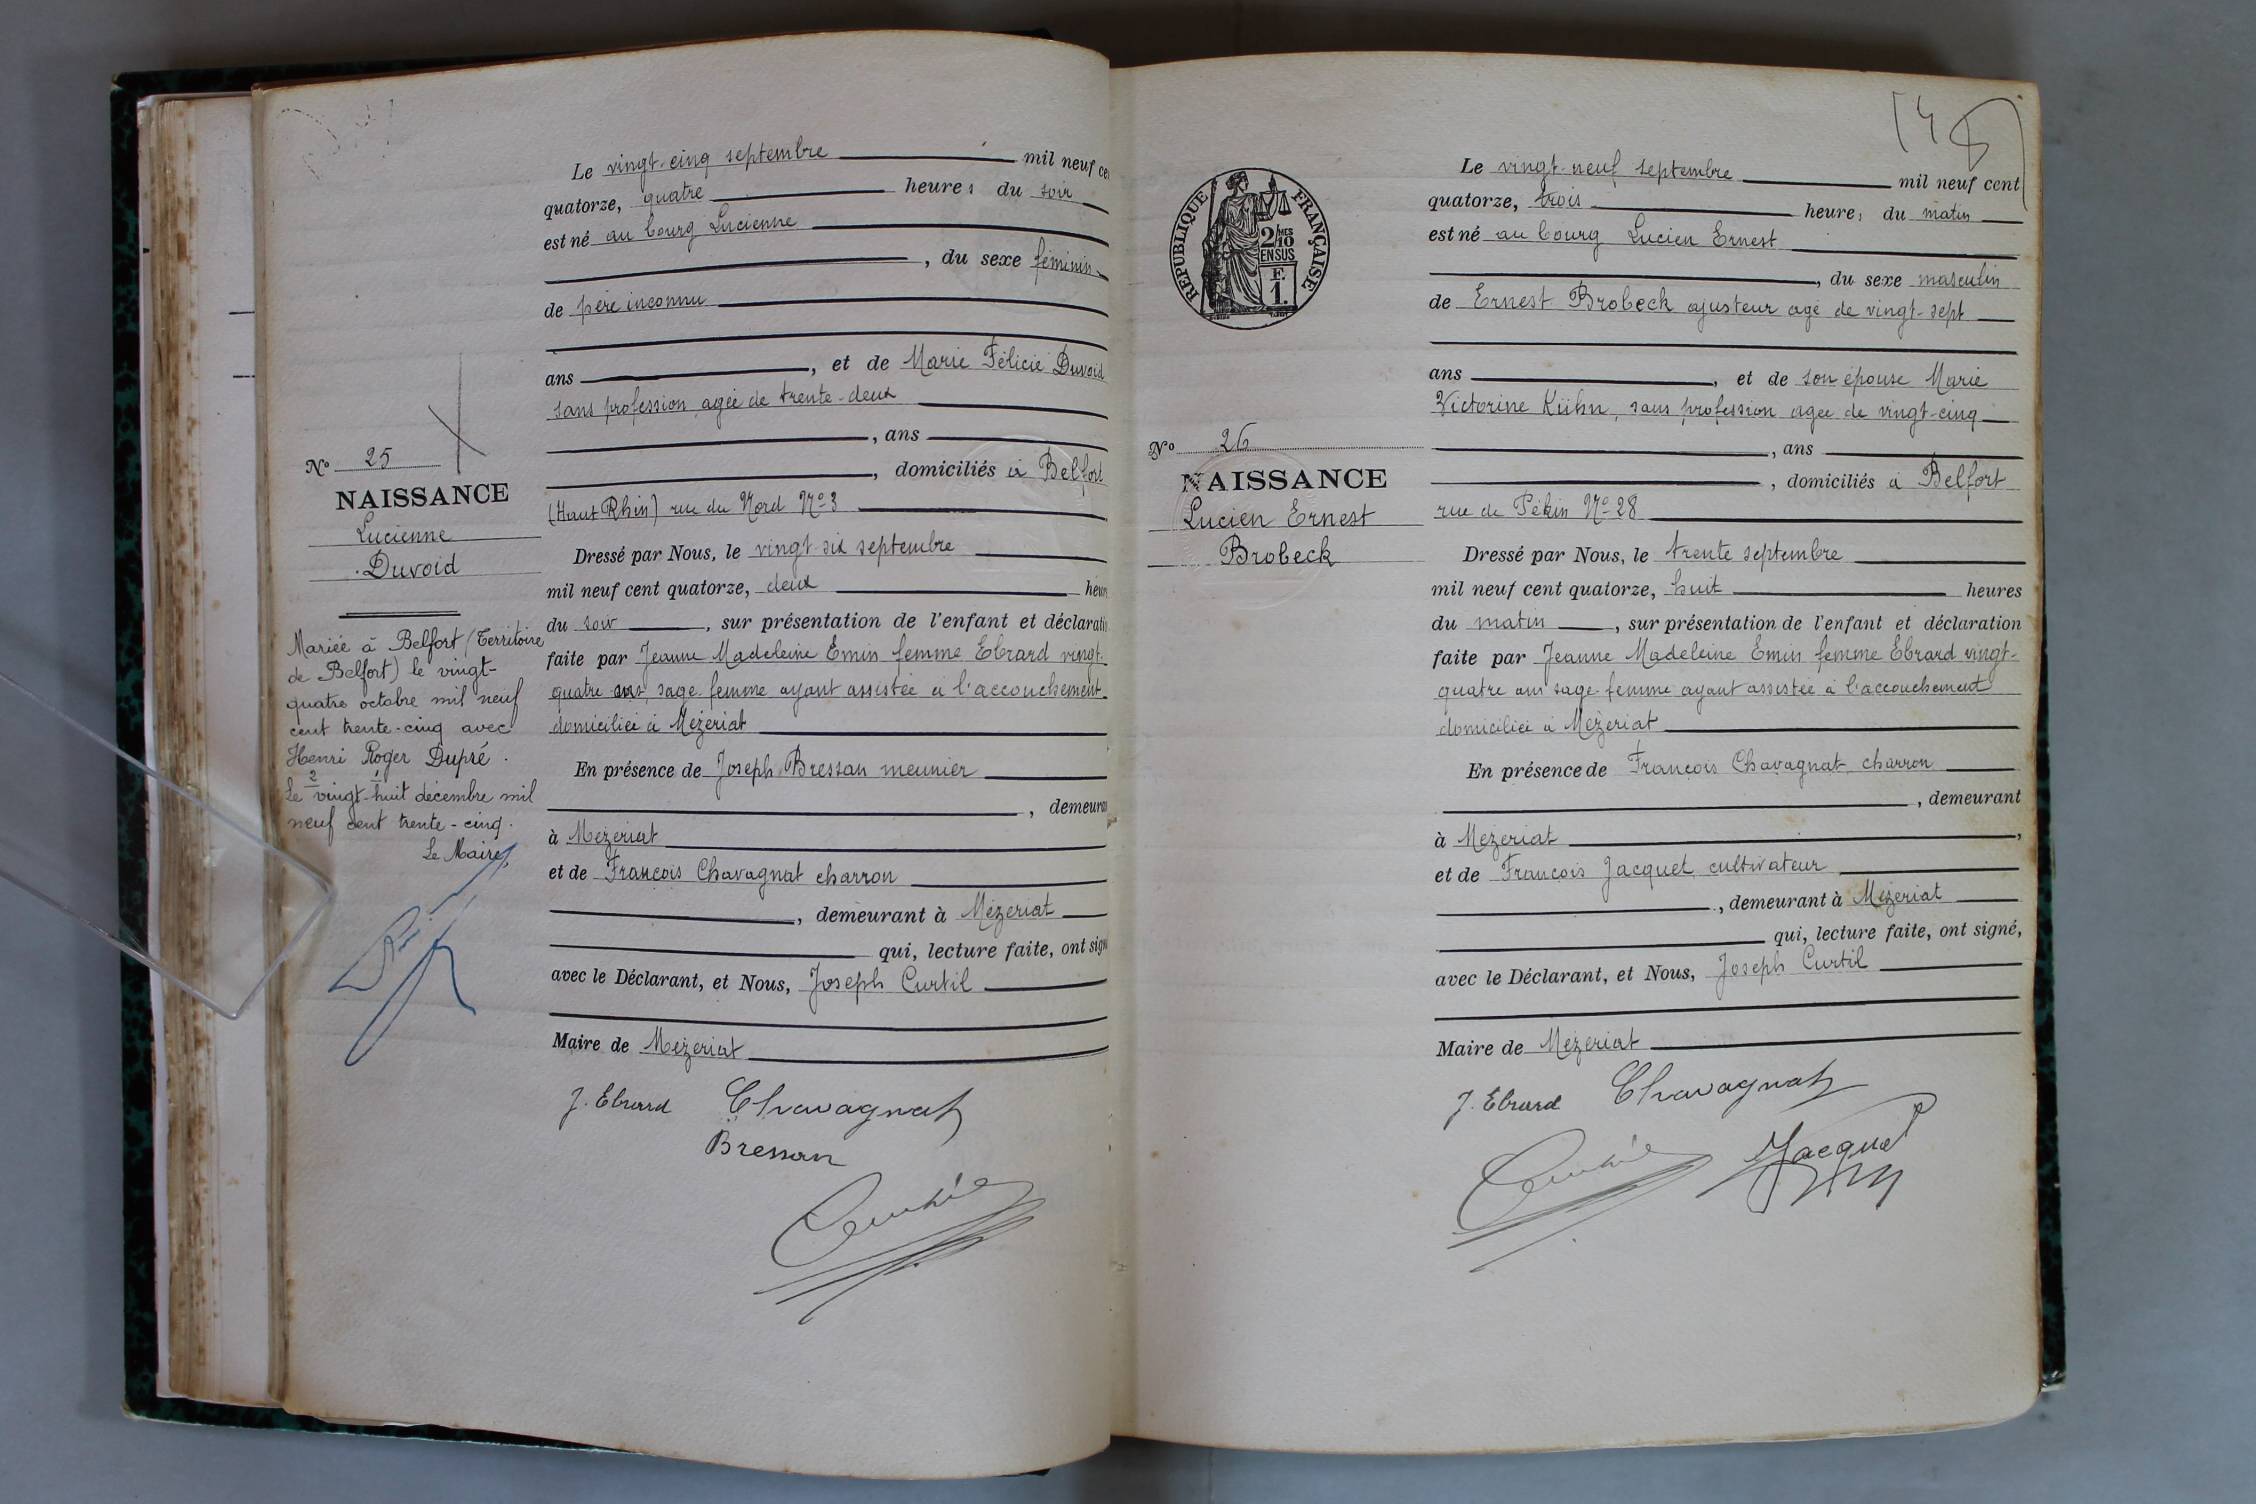 Le vingt-cinq septembre mil neuf ce
quatorze, quatre heures du soir
est né au bourg Lucienne
, du sexe féminin
de père inconnu
ans , et de Marie Félicie Duvoid
sans profession, agée de trente-deux
, ans
, domiciliés à Belfort
(Haut Rhin) rue du Nord No 3
Dressé par Nous, le vingt-six septembre
mil neuf cent quatorze, deux heur
du soir , sur présentation de l'enfant et déclarati
faite par Jeanne Madeleine Emin femme Ebrard vingt-
quatre ans, sage femme ayant assistée à l'accouchement
domiciliée à Mézeriat
En présence de Joseph Bressan meunier
, demeuran
à Mezeriat
et de François Chavagnat charron
, demeurant à Mézeriat
qui, lecture faite, ont sign
avec le Déclarant, et Nous, Joseph Curtil
Maire de Mezeriat
J. Ebrard Chavagnat
Bressan
No 25
NAISSANCE
Lucienne
Duvoid
Mariée à Belfort (Territoire
de Belfort) le vingt-
quatre octobre mil neuf
cent trente-cinq avec
Henri Roger Dupré.
2 1
Le vingt-huit décembre mil
neuf cent trente-cinq.
Le Maire,
RÉPUBLIQUE FRANÇAISE
2/10 MES
EN SUS
F.
1.
No 26
NAISSANCE
Lucien Ernest
Brobeck
Le vingt-neuf septembre mil neuf cent
quatorze, trois heures du matin
est né au bourg Lucien Ernest
, du sexe masculin
de Ernest Brobeck ajusteur agé de vingt-sept
ans , et de son épouse Marie
Victorine Kühn, sans profession agée de vingt-cinq
, ans
, domiciliés à Belfort
rue de Pékin No 28
Dressé par Nous, le trente septembre
mil neuf cent quatorze, huit heures
du matin , sur présentation de l'enfant et déclaration
faite par Jeanne Madeleine Emin femme Ebrard vingt-
quatre ans sage-femme ayant assistée à l'accouchement
domiciliée à Mézeriat
En présence de François Chavagnat charron
, demeurant
à Mezeriat ,
et de François Jacquet cultivateur
, demeurant à Mézeriat
qui, lecture faite, ont signé,
avec le Déclarant, et Nous, Joseph Curtil
Maire de Mézeriat
J. Ebrard Chavagnat
Jacquet